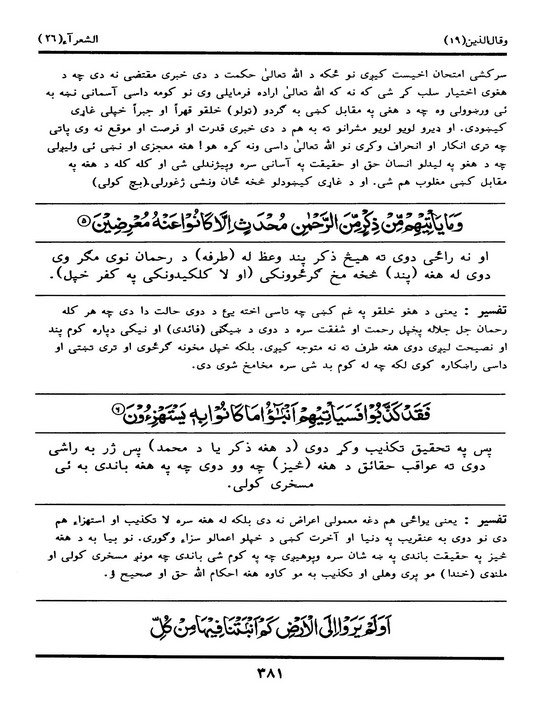 وقال‌الذین(۱۹)
الشعرآء (۲۶)
سرکشی امتحان اخیست کیږی نو ځکه د الله تعالیٰ حکمت د دی خبری مقتضی نه دی چه د
هغوی اختیار سلب کړ شی که نه که الله تعالیٰ اراده فرمایلی وی نو کومه داسی آسمانی نښه به
ئی ورښوولی وه چه د هغی په مقابل کښی به گردو (ټولو) خلقو قهراً او جبراً خپلی غاړی
کیښودی. او ډیرو لویو لویو مشرانو ته به هم د دی خبری قدرت او فرصت او موقع نه وی پاتی
چه تری انکار او انحراف وکړی نو الله تعالیٰ داسی ونه کړه هو! هغه معجزی او نښی ئی ولیږلی
چه د هغو په لیدلو انسان حق او حقیقت په آسانی سره وپیژندلی شی او کله کله د هغه په
مقابل کښی مغلوب هم شی. او د غاړی کیښودلو څخه ځان ونشی ژغورلی.(بچ کولی)
وَمَا يَأْتِيهِمْ مِّنْ ذِكْرٍ مِّنَ الرَّحْمٰنِ مُحْدَثٍ اِلَّا كَانُوْا عَنْهُ مُعْرِضِيْنَ ⑤
او نه راځی دوی ته هیڅ ذکر پند وعظ له (طرفه) د رحمان نوی مگر وی
دوی له هغه (پند) څخه مخ گرځوونکی (او لا کلکیدونکی په کفر خپل).
تفسیر : یعنی د هغو خلقو په غم کښی چه تاسی اخته یئ د دوی حالت دا دی چه هر کله
رحمان جل جلاله پخپل رحمت او شفقت سره د دوی د ښیگڼی (فائدی) او نیکی دپاره کوم پند
او نصیحت لیږی دوی هغه طرف ته نه متوجه کیږی. بلکه خپل مخونه گرځوی او تری تښتی او
داسی راښکاره کوی لکه چه له کوم بد شی سره مخامخ شوی دی.
فَقَدْ كَذَّبُوْا فَسَيَأْتِيهِمْ اَنْۢبٰٓؤُا مَا كَانُوْا بِهٖ يَسْتَهْزِءُوْنَ ⑥
پس په تحقیق تکذیب وکړ دوی (د هغه ذکر یا د محمد) پس ژر به راشی
دوی ته عواقب حقائق د هغه (څیز) چه وو دوی چه په هغه باندی به ئی
مسخری کولی.
تفسیر : یعنی یواځی هم دغه معمولی اعراض نه دی بلکه له هغه سره لا تکذیب او استهزاء هم
دی نو دوی به عنقریب په دنیا او آخرت کښی د خپلو اعمالو سزاء وگوری. نو بیا به د هغه
څیز په حقیقت باندی په ښه شان سره وپوهیږی چه په کوم شی باندی چه مونږ مسخری کولی او
ملنډی (خندا) مو پری وهلی او تکذیب به مو کاوه هغه احکام الله حق او صحیح ؤ.
اَوَلَمْ يَرَوْا اِلَى الْاَرْضِ كَمْ اَنْۢبَتْنَا فِيْهَا مِنْ كُلِّ
۳۸۱